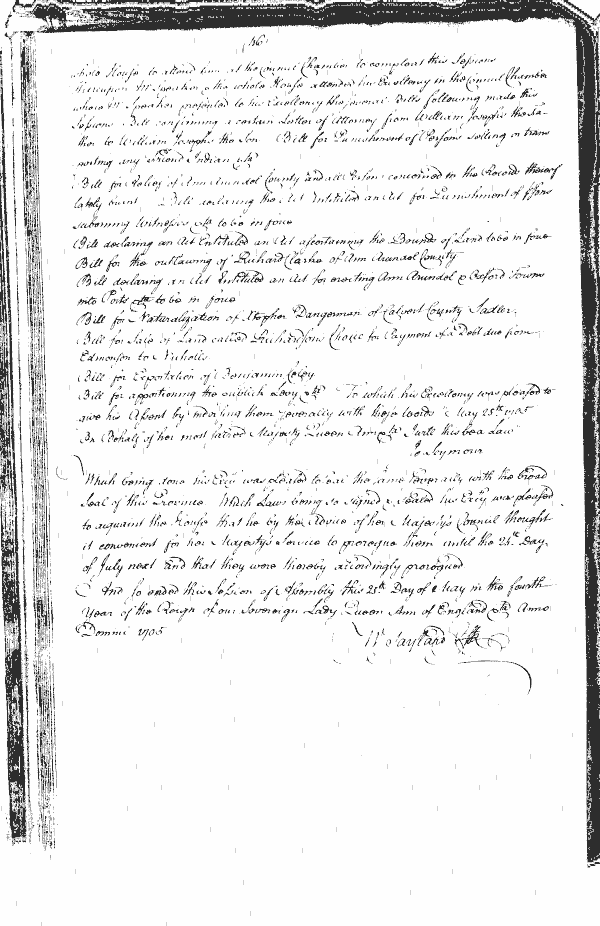 whole House to attend him at the Council Chamber to compleat this Sessions
Thereupon Mr Speaker & the whole House attended his Excellency in the Council Chamber
where Mr Speaker presented to his Excellency the several Bills following made this
Sessions Bill confirming a certain Letter of Attorney from William Josephs the Fa-
ther to William Josephs the Son Bill for Punishment of Persons selling or trans
porting any Friend Indian &ca
Bill for Reliefe of Ann Arundel County and all Persons concerned in the Records thereof
lately burnt Bill declaring the Act Entituled an Act for Punishment of Persons
suborning Witnesses &ca to be in force
Bill declaring an Act Entituled an Act ascertaining the Bounds of Land to be in force
Bill for the outlawing of Richard Clarke of Ann Arundel County
Bill declaring an Act Entituled an Act for erecting Ann Arundel & Oxford Towns
into Ports &ca to be in force
Bill for Naturalization of Xtopher Dangerman of Calvert County Sadler
Bill for Sale of Land called Richardsons Choice for Payment of a Debt due from
Edmonson to Nicholls
Bill for Exportation of Benjamin
Bill for apportioning the publick Levy &ca To which his Excellency was pleased to
give his Assent by indorsing them severally with these Words May 25th 1705
On Behalf of her most sacred Majesty Queen Ann &ca I will this be a Law
Jo Seymour
Which being done his Excy was pleased to seal the same severally with the broad
Seal of this Province Which Laws being so signed & sealed his Excy was pleased
to acquaint the House that he by the Advice of her Majestys Council thought
it convenient for her Majestys Service to prorogue them until the 24th Day
of July next and that they were thereby accordingly prorogued
And so ended this Session of Assembly this 25th Day of May in the fourth
Year of the Reign of our Sovereign Lady Queen Ann of England &ca Anno
Domini 1705
W Taylard